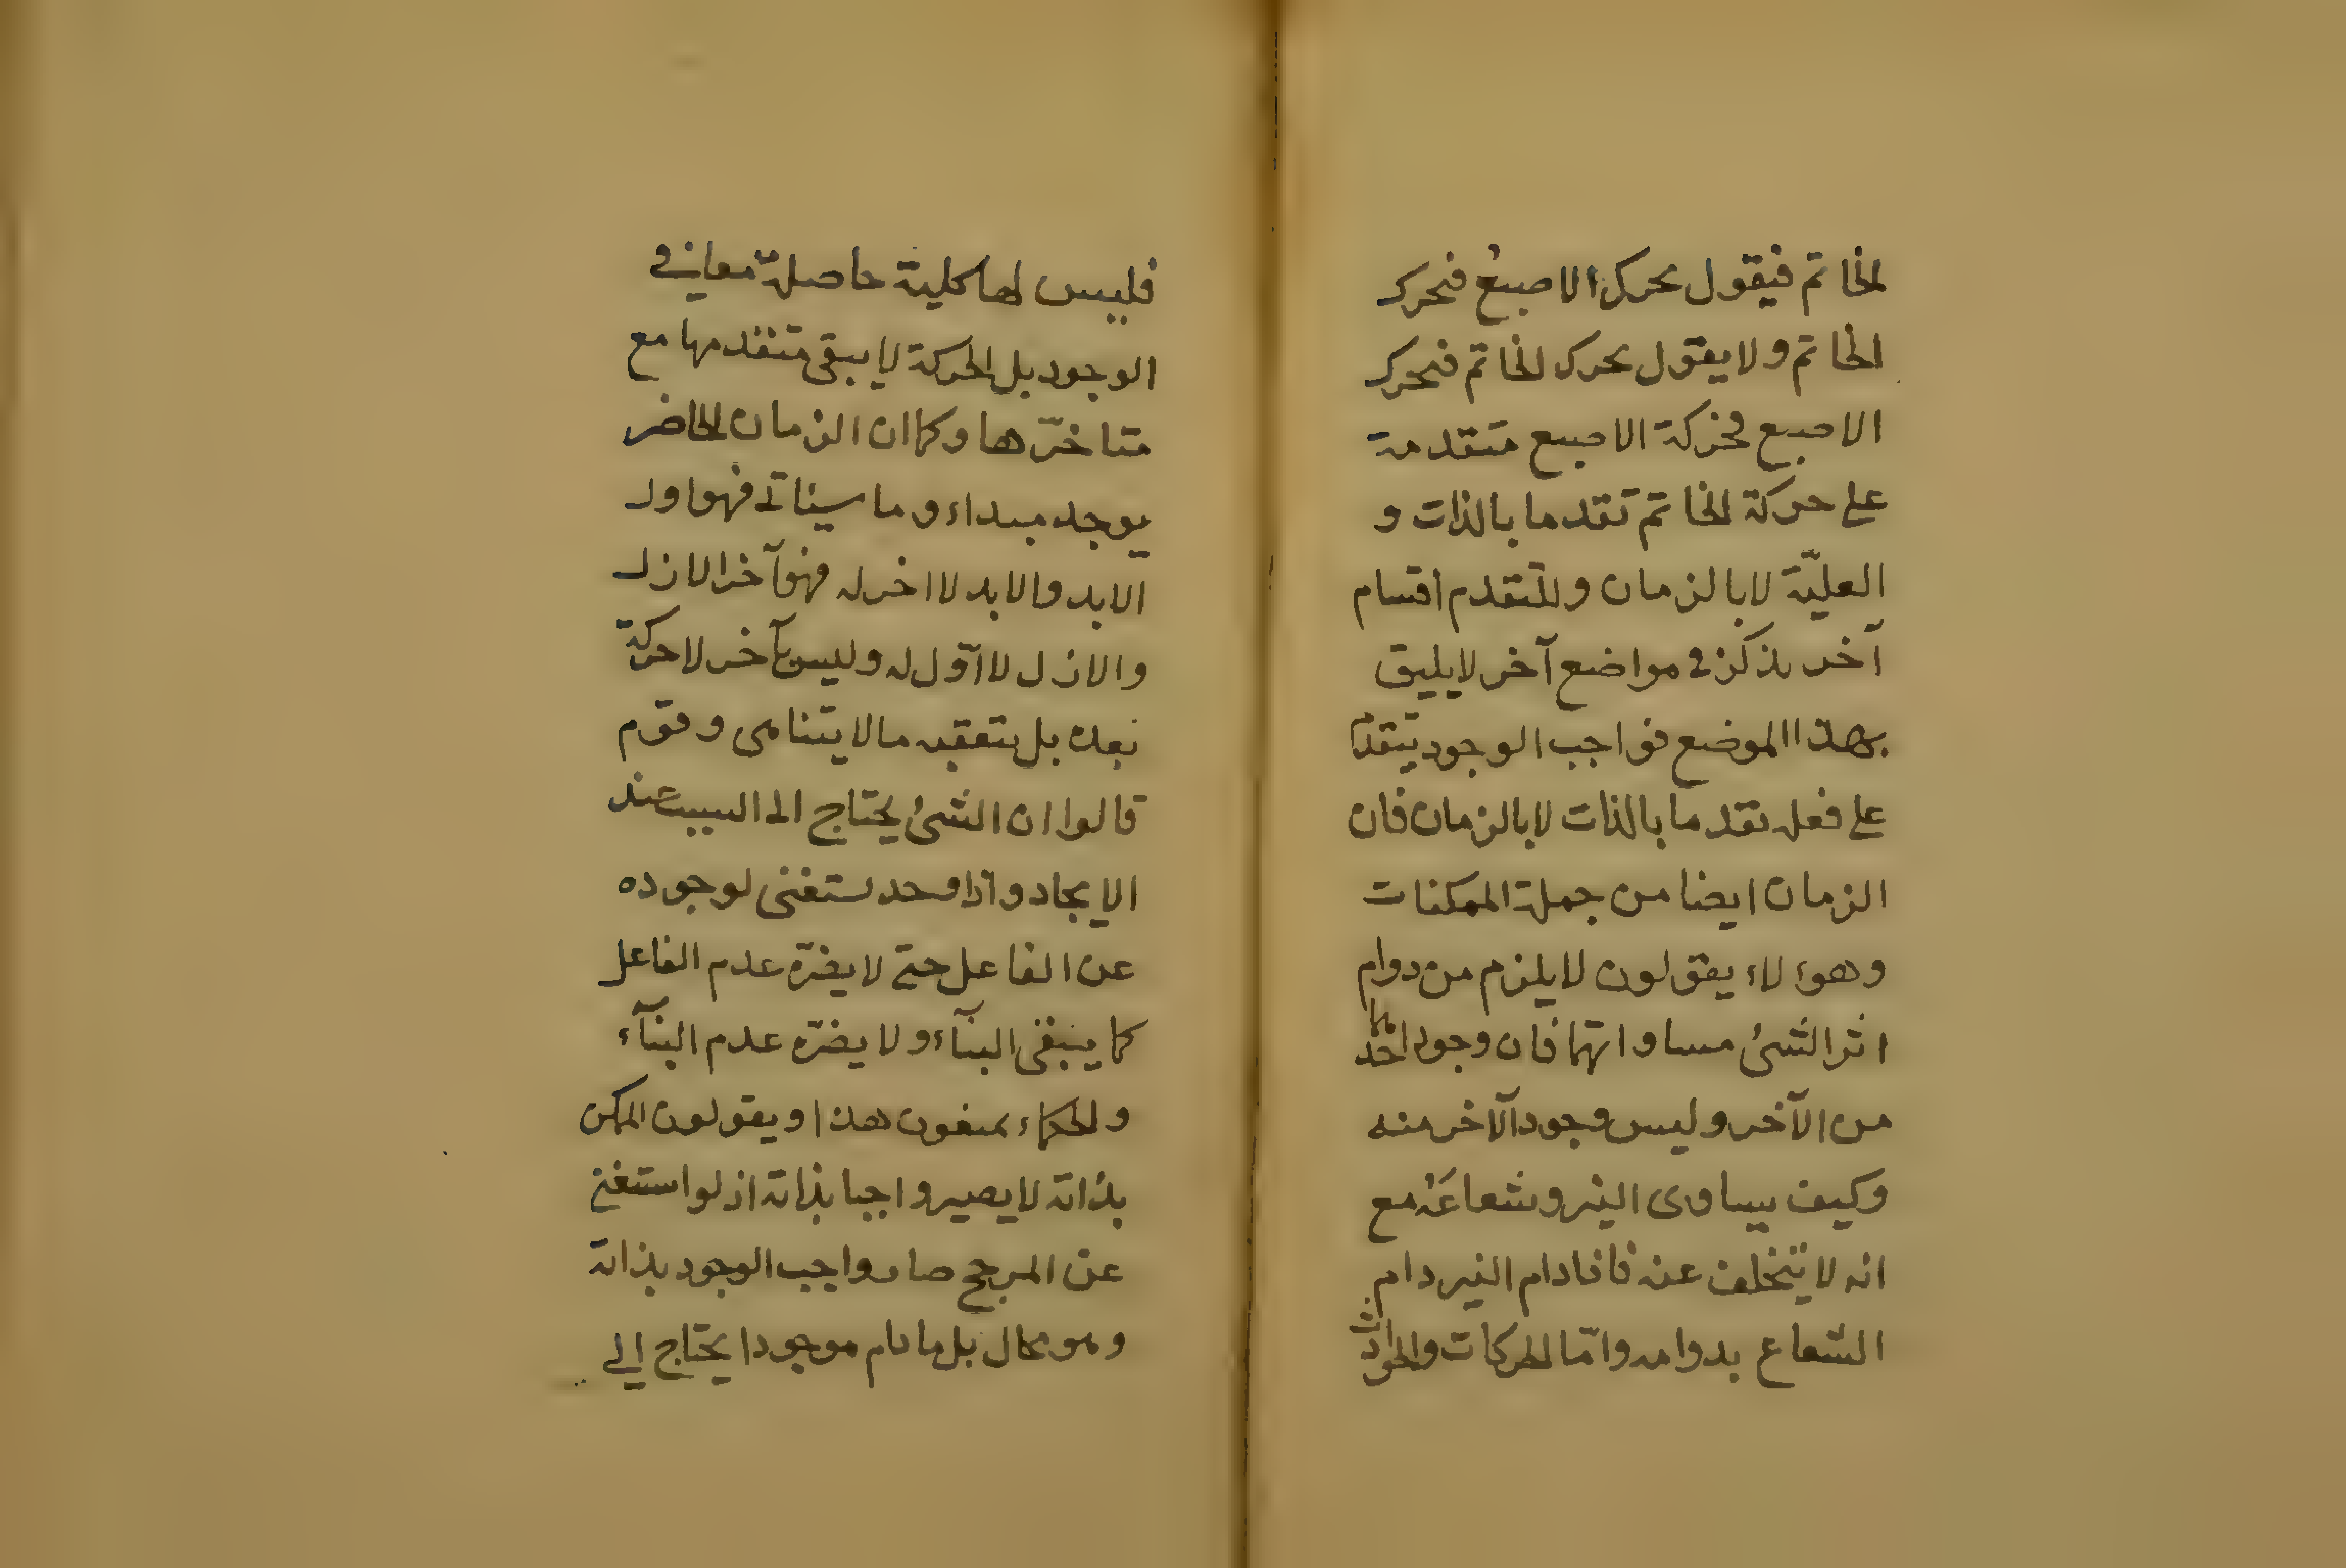 الخاتم فيقول تحرك الاصبع فتحرك
الخاتم ولا يقول تحرك الخاتم فتحرك
الاصبع فحركة الاصبع متقدمة
على حركة الخاتم تقدما بالذات و
العليّة لا بالزمان وللتقدم اقسام
آخر يذكر فى مواضع آخر لا يليق
بهذا الموضع فواجب الوجود يتقدم
على فعله تقدما بالذات لا بالزمان فان
الزمان ايضا من جملة الممكنات
وهوءلاء يقولون لا يلزم من دوام
اثر الشئ مساواتهما فان وجود احدهما
من الآخر وليس وجود الآخر منه
وكيف يساوى النير وشعاعه مع
انه لا يتخلف عنه فاذا دام النير دام
الشعاع بدوامه وامّا الحركات والحوادث
فليس لها كلية حاصلة معا فى
الوجود بل الحركة لا يبقى متقدمها مع
متاخرّها وكما ان الزمان الحاضر
يوجد مبداء وما سياتى فهو اول
الابد والابد لا اخر له فهو آخر الازل
والازل لا اوّل له وليس بآخر لا حركة
بعده بل يتعقبه ما لا يتناهى وقوم
قالوا ان الشئ يحتاج الى السبب عند
الايجاد واذا وجد يستغنى لوجوده
عن الفاعل حتى لا يضرّه عدم الفاعل
كما يبقى البنآء ولا يضرّه عدم البنآء
والحكماء يمنعون هذا ويقولون الممكن
بذاته لا يصير واجبا بذاته اذ لو استغنى
عن المرجح صار واجب الوجود بذاته
وهو محال بل ما دام موجودا يحتاج الى